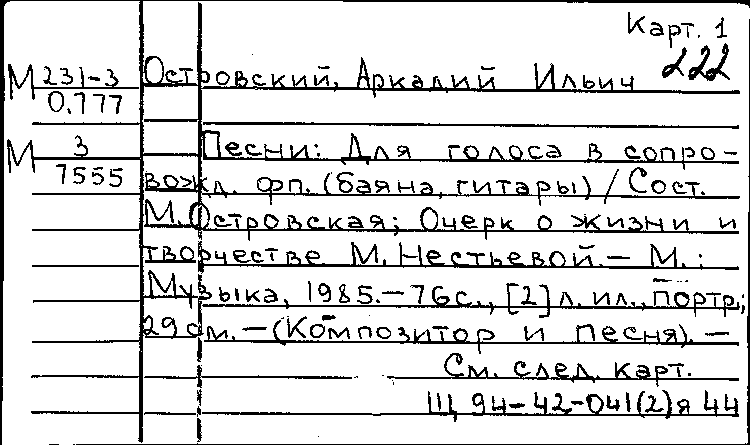 Карт. 1
222
М 231-3 Островский, Аркадий Ильич
0.777
М 3 Песни: Для голоса в сопро-
7555 вожд. фп. (баяна, гитары) / Сост.
М. Островская; Очерк о жизни и
творчестве М. Нестьевой. — М.:
Музыка, 1985. — 76 с., [2] л. ил., портр.;
29 см. — (Композитор и песня). —
См. след. карт.
Щ 94-42-041(2)я 44